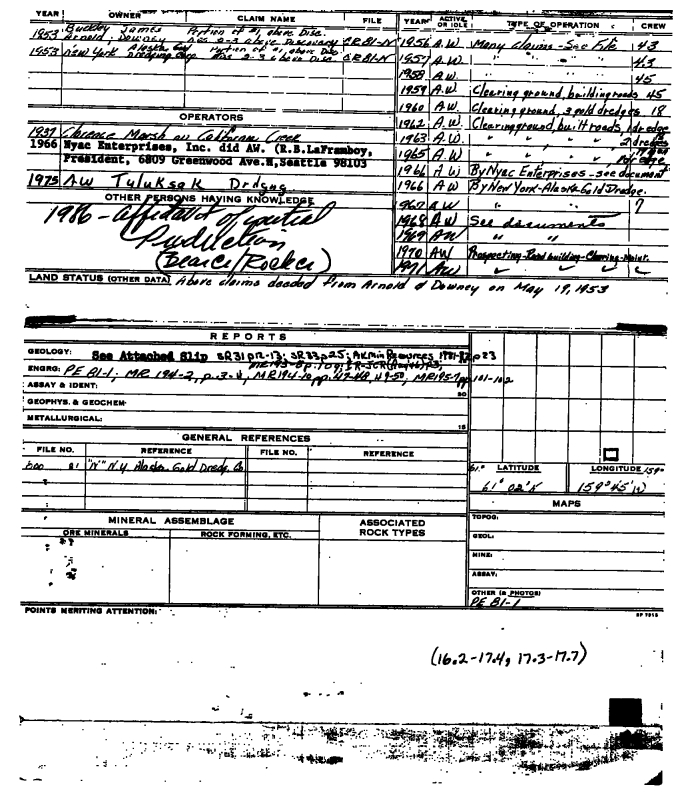 YEAR OWNER CLAIM NAME FILE
1953 Buckley James Arnold, Downey Portion of #1, above Disc. Nos 2-3 above Discovery CRB1-N
1953 New York Alaska Gold Dredging Corp Portion of #1, above Disc Nos 2-3 above Disc. CRB1-N
OPERATORS
1937 Clarence Marsh on California Creek
1966 Nyac Enterprises, Inc. did AW. (R.B.LaFramboy,
President, 6809 Greenwood Ave.N,Seattle 98103
1975 AW Tuluksak Drdgng
OTHER PERSONS HAVING KNOWLEDGE
1986 - Affidavit of partial
Production
(Bearce/Rocker)
YEAR ACTIVE OR IDLE TYPE OF OPERATION CREW
1956 A.W. Many claims - See File 43
1957 A.W. " " " 43
1958 A.W. " " " 45
1959 A.W. Clearing ground, building roads 45
1960 A.W. Clearing ground, 3 gold dredges 18
1962 A.W. Clearing ground, built roads, 1 dredge
1963 A.W. " " " 2 dredges
1965 A.W. " " " dredge
1966 A W By Nyac Enterprises - see document
1966 A.W. By New York-Alaska Gold Dredge.
1967 A.W. " " " 7
1968 A W See documents
1969 AW " "
1970 AW Prospecting-Road building-Clearing-Maint.
1971 AW
LAND STATUS (OTHER DATA) Above claims deeded from Arnold & Downey on May 19, 1953
REPORTS
GEOLOGY: See Attached Slip SR31 p12-13; SR33 p25; AKMin Resources 1981-82 p23
ENGRG: PE 81-1; MR 194-2, p.3-4, MR194-10 pp.47-48, 49-50, MR195-7 pp.101-102
ASSAY & IDENT:
GEOPHYS. & GEOCHEM:
METALLURGICAL:
GENERAL REFERENCES
FILE NO. REFERENCE FILE NO. REFERENCE
81 "N" N.Y. Alaska Gold Dredg. Co
61° LATITUDE LONGITUDE 159°
61° 02'N 159° 45' W
MAPS
TOPOG:
GEOL:
MINE:
ASSAY:
OTHER (& PHOTOS)
PE 81-1
MINERAL ASSEMBLAGE ASSOCIATED ROCK TYPES
ORE MINERALS ROCK FORMING, ETC.
POINTS MERITING ATTENTION:
SP 7915
(16.2-17.4, 17.3-17.7)